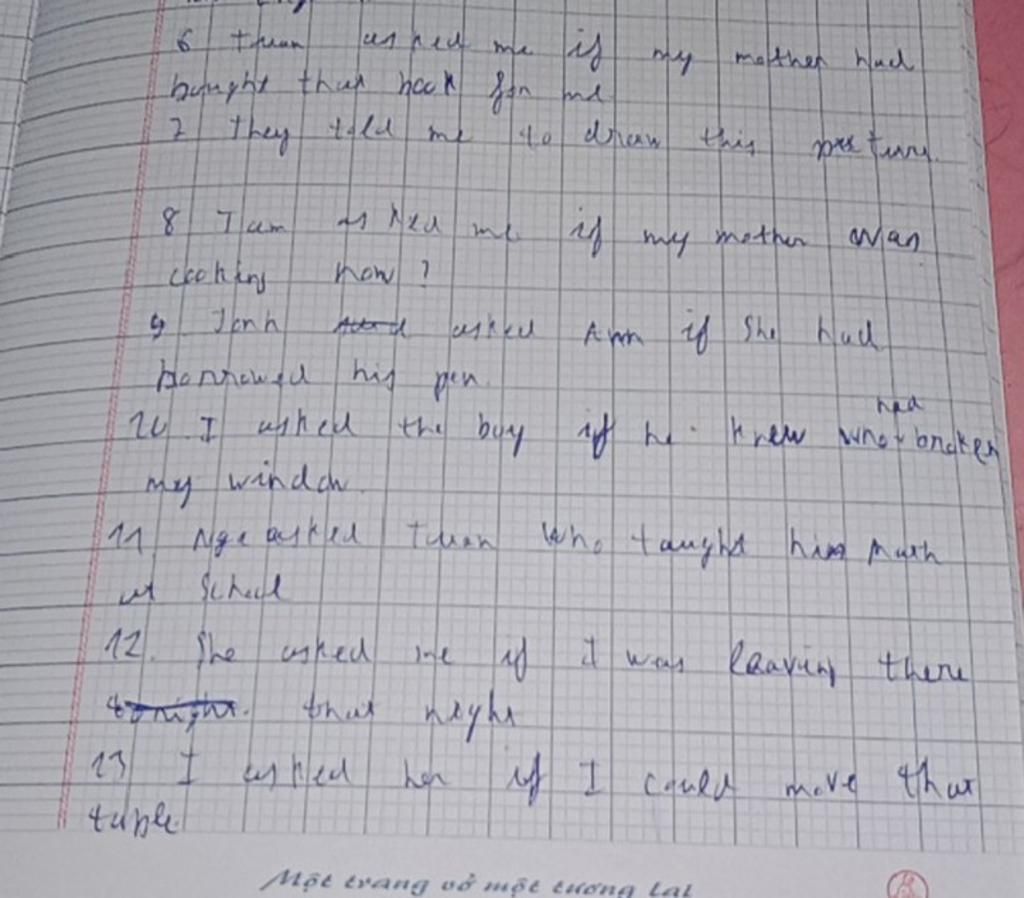 6 Thuan asked me if my mother had
bought that book for me
7 They told me to draw this picture.
8 Tam asked me if my mother was
cooking now ?
9 Jonh asked Ann if she had
borrowed his pen.
10 I asked the boy if he knew who had broken
my window
11 Nga asked Tuan who taught him math
at school
12. She asked me if I was leaving there
tonight. that night
13 I asked her if I could move that
table.
Một trang vở một tương lai